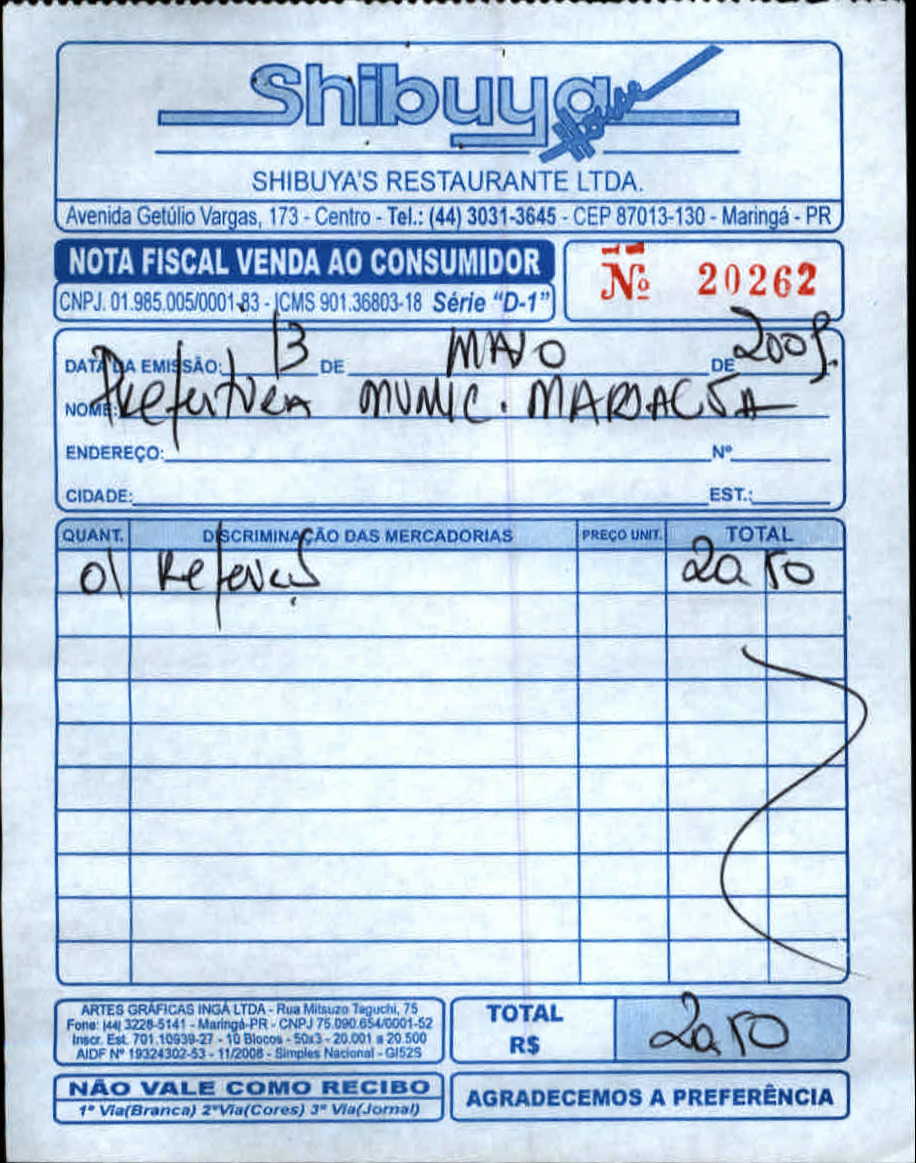 Shibuya House
SHIBUYA'S RESTAURANTE LTDA.
Avenida Getúlio Vargas, 173 - Centro - Tel.: (44) 3031-3645 - CEP 87013-130 - Maringá - PR
NOTA FISCAL VENDA AO CONSUMIDOR
Nº 20262
CNPJ. 01.985.005/0001-83 - ICMS 901.36803-18 Série "D-1"
DATA DA EMISSÃO: 13 DE MAIO DE 2009.
NOME: Prefeitura MUNIC.
ENDEREÇO: Nº
CIDADE: EST.:
QUANT. DISCRIMINAÇÃO DAS MERCADORIAS PREÇO UNIT. TOTAL
01
ARTES GRÁFICAS INGÁ LTDA - Rua Mitsuzo Taguchi, 75
Fone: (44) 3228-5141 - Maringá-PR - CNPJ 75.090.654/0001-52
Inscr. Est. 701.10939-27 - 10 Blocos - 50x3 - 20.001 a 20.500
AIDF Nº 19324302-53 - 11/2008 - Simples Nacional - GI52S
TOTAL
R$
NÃO VALE COMO RECIBO
1ª Via(Branca) 2ª Via(Cores) 3ª Via(Jornal)
AGRADECEMOS A PREFERÊNCIA